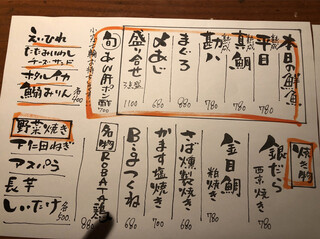 本日の鮮魚
平目 780
真鯛 780
勘八 780
まぐろ 680
〆あじ 680
盛り合せ 1100
旬 あん肝ポン酢
えいひれ
たたみいわし
チーズサンド
ホタルイカ
鰯みりん 各400
焼き物
銀だら 西京焼き
金目鯛 粕焼き 780
さば燻製焼き 680
かます塩焼き 680
Big つくね
名物 ROBATA鶏 880
野菜焼き
下仁田ねぎ
アスパラ
長芋
しいたけ 各500